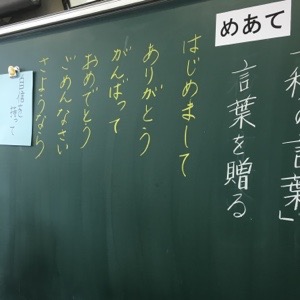 めあて
の言葉」
言葉を贈る
はじめまして
ありがとう
がんばって
おめでとう
ごめんなさい
さようなら
自信を
持って